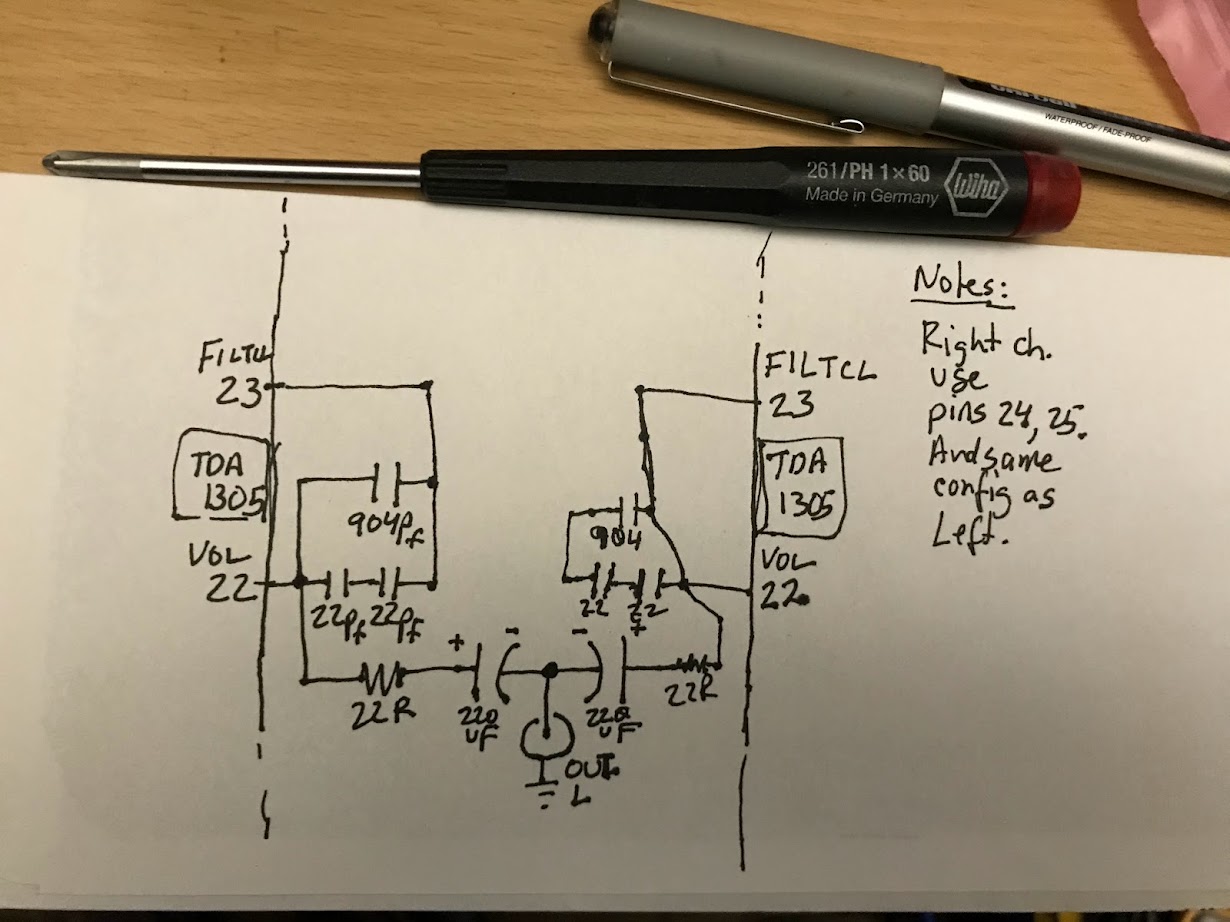 WATERPROOF / FADE-PROOF
261/PH 1×60
Made in Germany
Wiha
FILTCL
23
TDA
1305
VOL
22
904Pf
22Pf 22Pf
22R
+
-
220
UF
-
220
UF
OUT
L
22R
904
22
22
FILTCL
23
TDA
1305
VOL
22
Notes:
Right ch.
use
pins 24, 25.
And same
config as
Left.